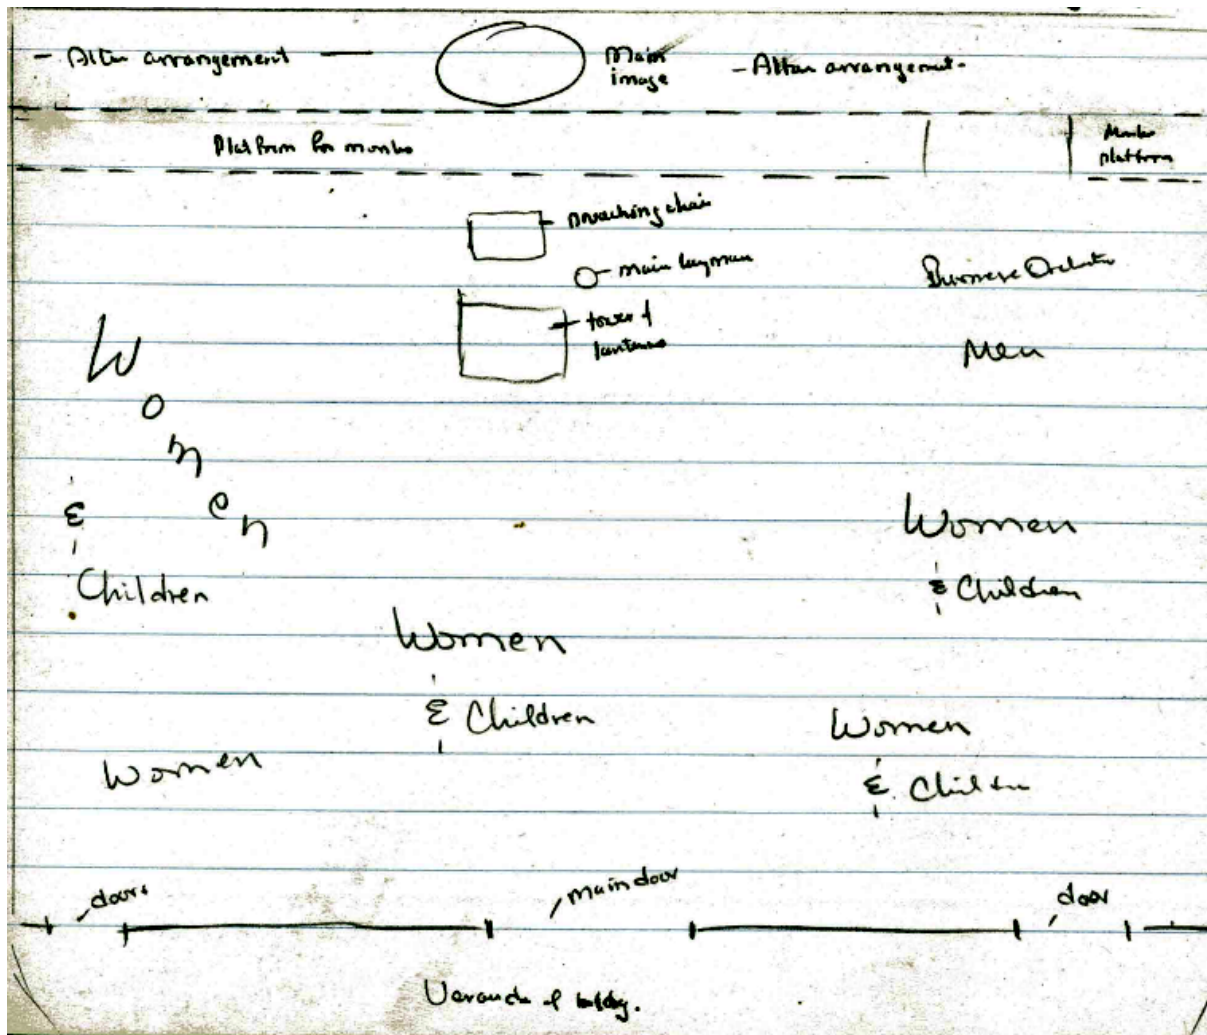 - Altar arrangement —
Main
image
- Altar arrangement -
Platform for monks
Monks
platform
preaching chair
main layman
Burmese Orchestra
tower of
lanterns
Men
Women
&
Children
Women
& Children
Women
& Children
Women
& Children
Women
doors
main door
door
Veranda of bldg.